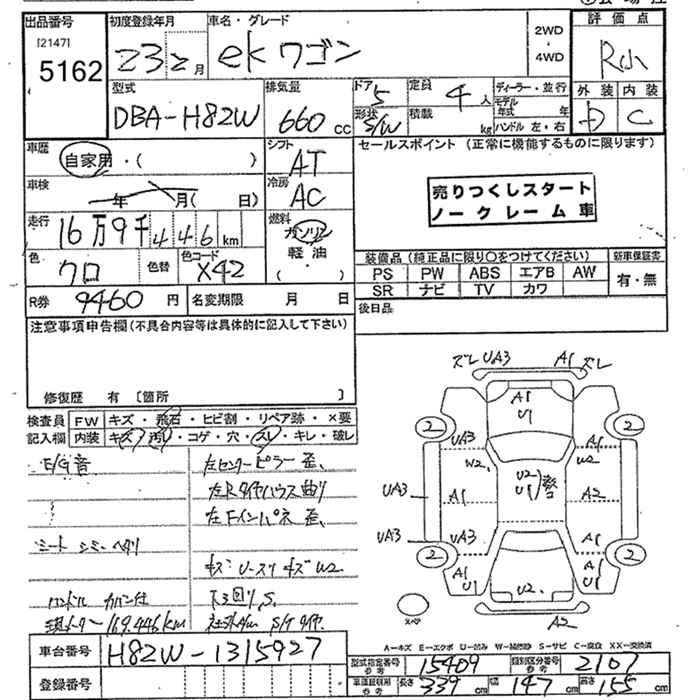 出品番号
[2147]
5162
初度登録年月
23 2月
車名・グレード
ekワゴン
2WD
・
4WD
評価点
R小
外装 内装
D C
型式
DBA-H82W
排気量
660 cc
ドア 5
形状 S/W
定員 4人
積載 kg
ディーラー・並行
モデル年式 年
ハンドル 左・右
車歴
自家用・( )
シフト
AT
セールスポイント (正常に機能するものに限ります)
売りつくしスタート
ノークレーム車
車検
年 月( 日)
冷房
AC
走行
16万9千446km
燃料
ガソリン
軽油
( )
色
クロ
色替
色コード
X42
装備品 (純正品に限り○をつけてください)
新車保証書
PS PW ABS エアB AW
SR ナビ TV カワ
有・無
R券 9460円
名変期限 月 日
後日品
注意事項申告欄(不具合内容等は具体的に記入して下さい)
修復歴 有 〔箇所 〕
検査員
記入欄
FW キズ・飛石・ヒビ割・リペア跡・×要
内装 キズ・汚れ・コゲ・穴・スレ・キレ・破レ
E/G音
左センターピラー歪、
左Rタイヤハウス曲り
左Fインパネ歪、
シート シミ・ヘタリ
キズ U・スリキズ W2
ハンドル カバー付
下廻りS.
現メーター169.446km
S/T タイヤ
ズレ UA3 A1 ズレ
A1
U1
2 2
UA3 A1
W2 W2
U2
U1
UA3 A1 A2
UA3 UA3 A1
2 2
A1
U1
A1
U1
U2
スペア
A2
A-キズ E-エクボ U-凹み W-補修跡 S-サビ C-腐食 XX-交換済
車台番号 H82W-1315927
登録番号
型式指定番号 参考 15409
類別区分番号 参考 2107
車検証期用 参考 長さ 339 cm 幅 147 cm 高さ 155 cm